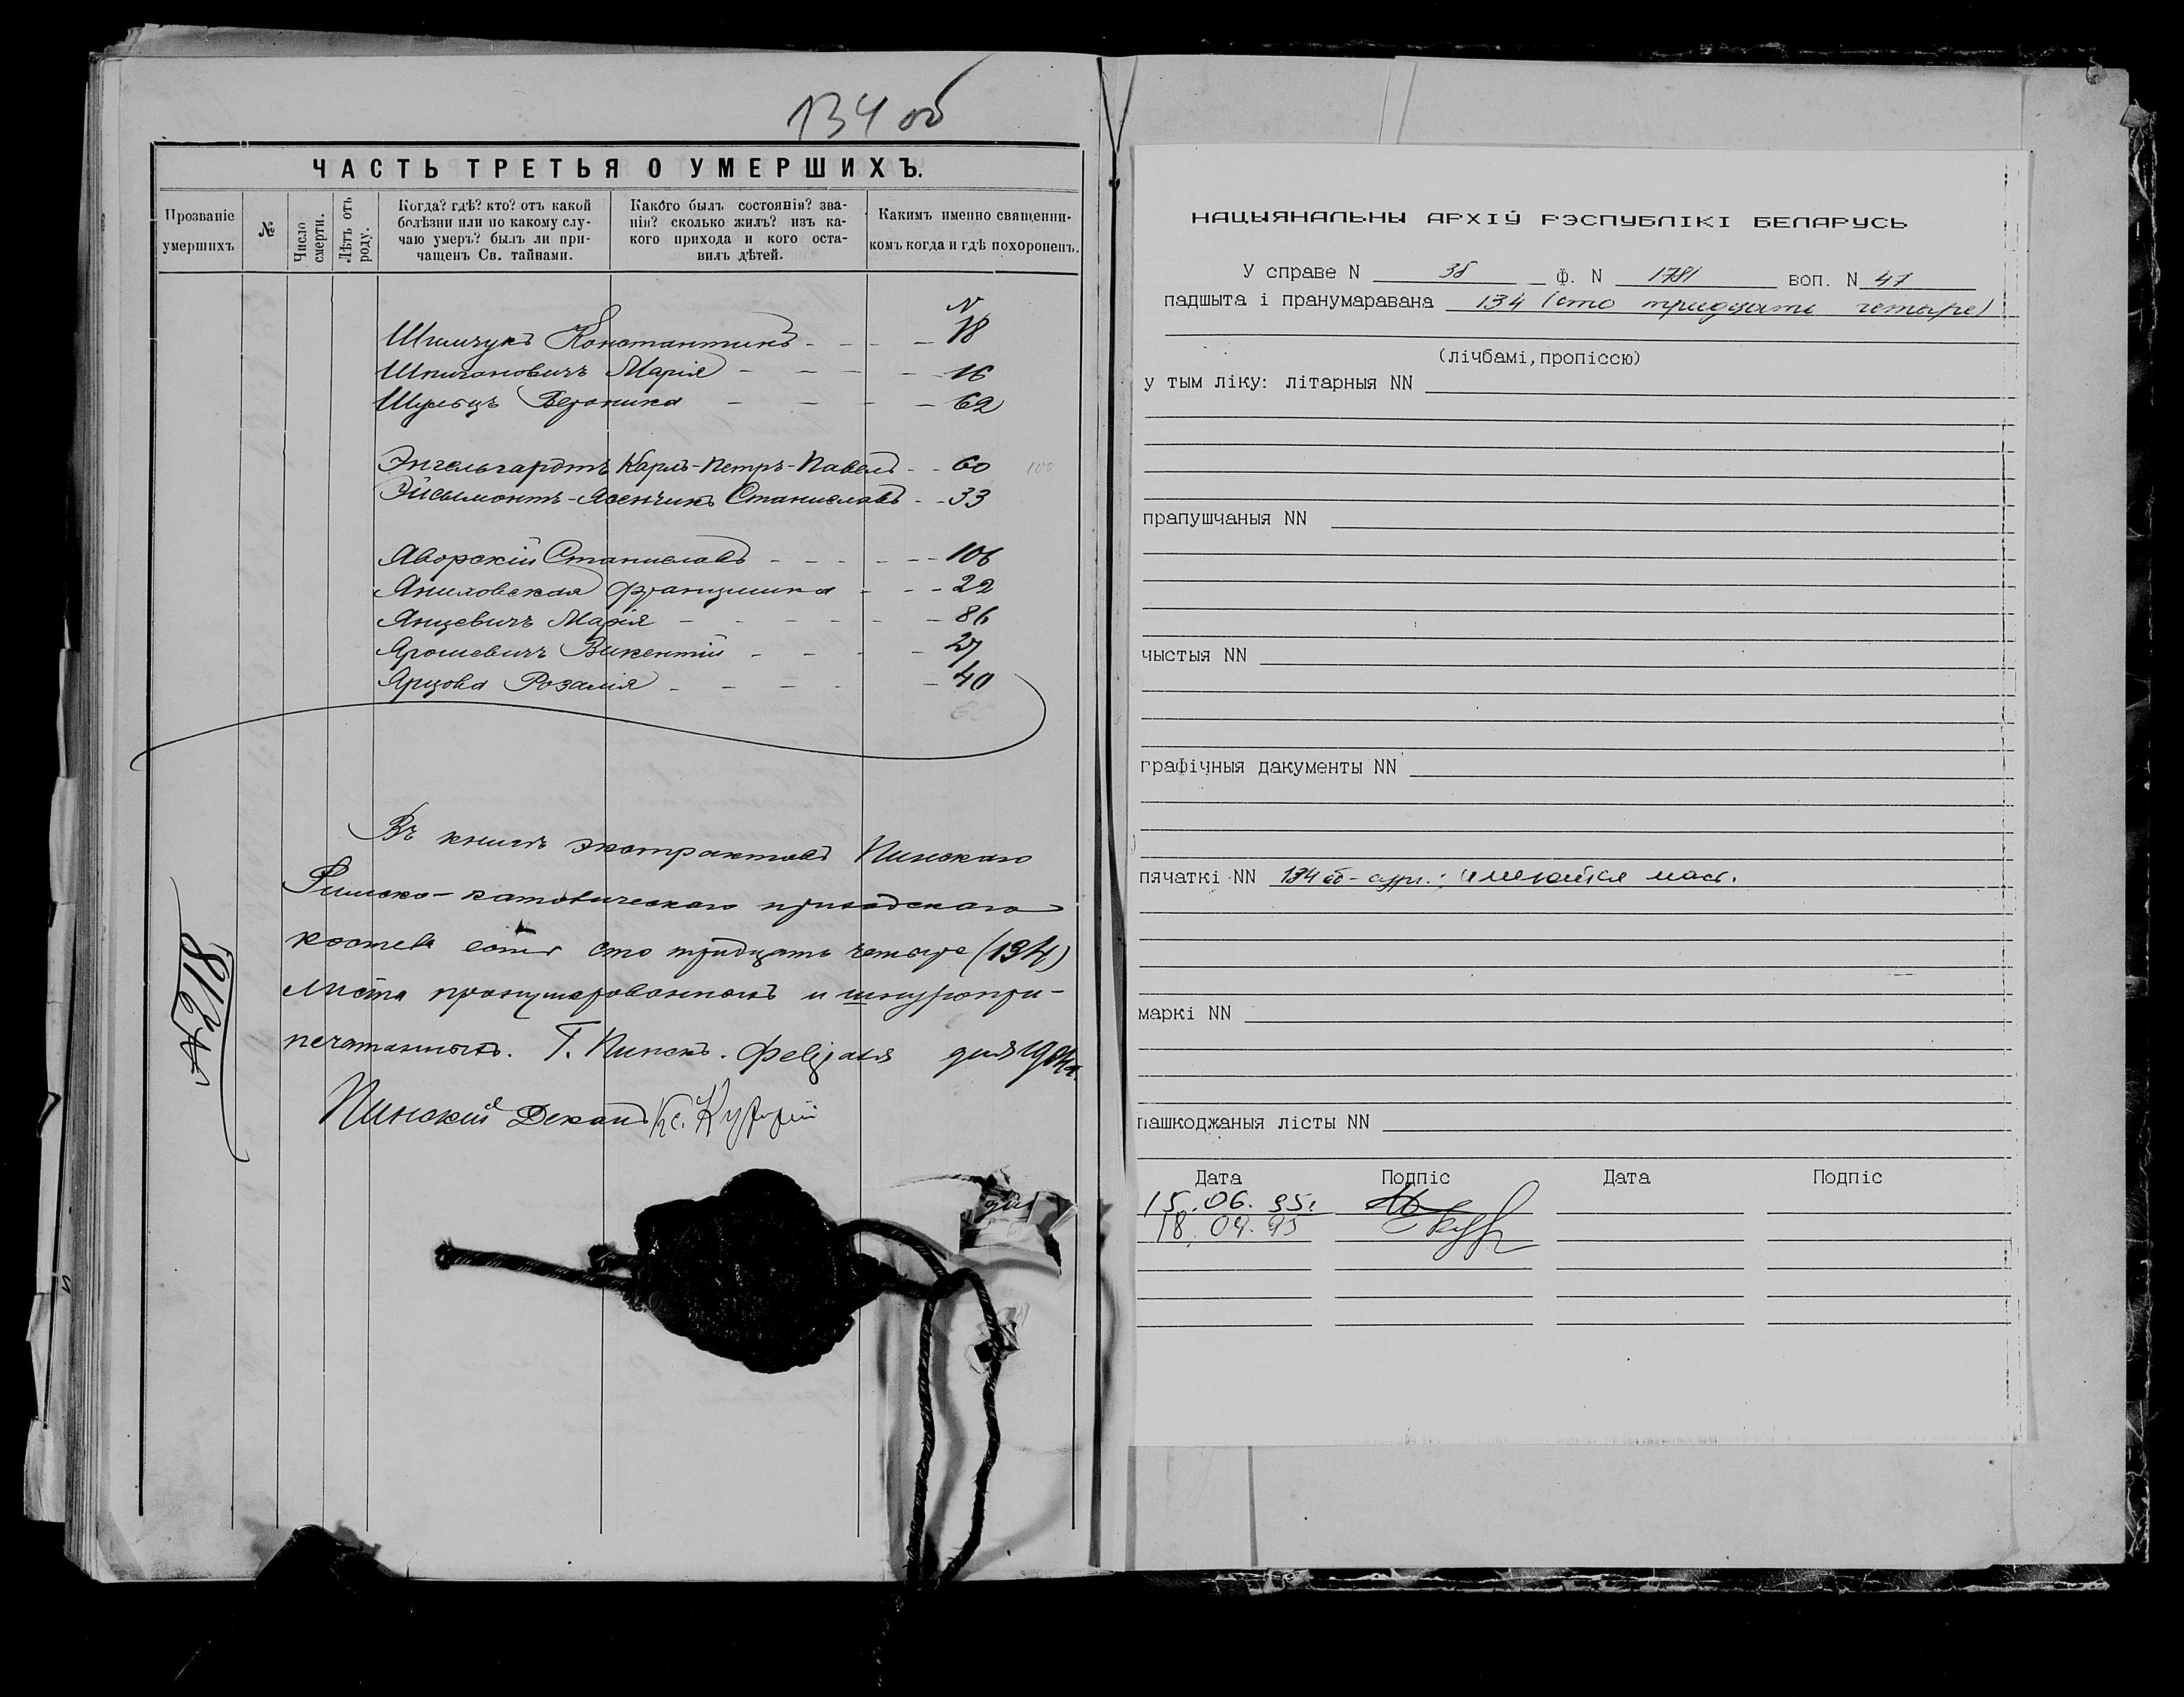 134 об
ЧАСТЬ ТРЕТЬЯ О УМЕРШИХЪ.
Прозваніе умершихъ
№
Число смерти.
Лѣтъ отъ роду.
Когда? гдѣ? кто? отъ какой
болѣзни или по какому слу-
чаю умеръ? былъ ли при-
чащенъ Св. тайнами.
Какого былъ состоянія? зва-
нія? сколько жилъ? изъ ка-
кого прихода и кого оста-
вилъ дѣтей.
Какимъ именно священни-
комъ когда и гдѣ похороненъ.
N
Шимчукъ Константинъ - - - 18
Шпигановичъ Марія - - - - 16
Шульцъ Вероника - - - - 62
Энгельгардтъ Карлъ-Петръ-Павелъ - - 60
Эйсымонтъ-Ясенчикъ Станиславъ - - 33
Яворскій Станиславъ - - - - - 106
Яниховская Францишка - - - 22
Янцевичъ Марія - - - - - - 86
Ярошевичъ Викентій - - - - 27
Ярцова Розалія - - - - 40
Въ книгѣ экстрактовъ Пинскаго
Римско-католическаго приходскаго
костела есть сто тридцать четыре (134)
листа пронумерованныхъ и шнуропри-
печатанныхъ. Г. Пинскъ. Февраля дня
Пинскій Деканъ Кс.
НАЦЫЯНАЛЬНЫ АРХІЎ РЭСПУБЛІКІ БЕЛАРУСЬ
У справе N 38 Ф. N 1781 воп. N 47
падшыта і пранумаравана 134 (сто тридцать четыре)
(лічбамі, пропіссю)
у тым ліку: літарныя NN
прапушчаныя NN
чыстыя NN
графічныя дакументы NN
пячаткі NN 134 об - сург.;
маркі NN
пашкоджаныя лісты NN
Дата Подпіс Дата Подпіс
15.06.95г.
18.09.95